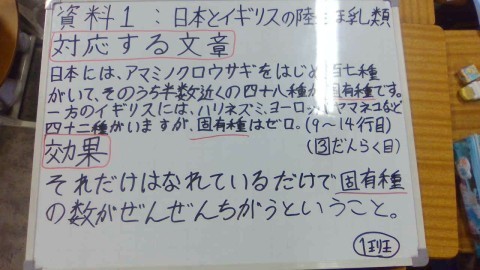 資料1:日本とイギリスの陸ほ乳類
対応する文章
日本には、アマミノクロウサギをはじめ百七種
がいて、そのうち半数近くの四十八種が固有種です。
一方のイギリスには、ハリネズミ、ヨーロッパヤマネコなど
四十二種がいますが、固有種はゼロ。(9〜14行目)
効果
(3だんらく目)
それだけはなれているだけで固有種
の数がぜんぜんちがうということ。
1班